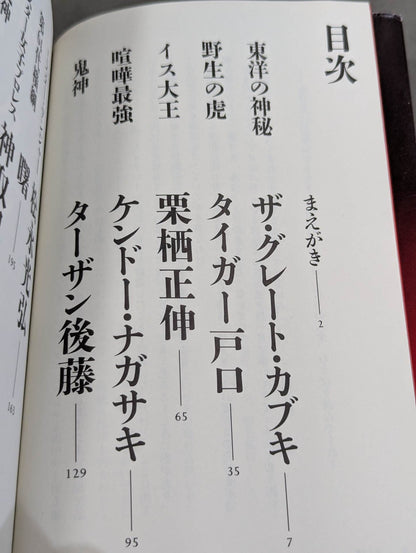 目次
まえがき 2
東洋の神秘 ザ・グレート・カブキ 7
野生の虎 タイガー戸口 35
イス大王 栗栖正伸 65
喧嘩最強 ケンドー・ナガサキ 95
鬼神 ターザン後藤 129
松永光弘 163
曙 195